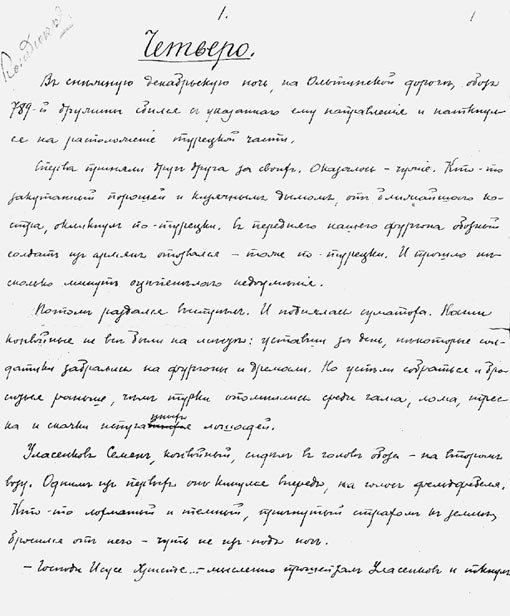 1.
1
Четверо.
Въ снѣжную декабрьскую ночь, на Ольтинской дорогѣ, обозъ
789-й дружины сбился съ указаннаго ему направленія и наткнул-
ся на расположеніе турецкой части.
Сперва приняли другъ друга за своихъ. Оказалось – чужіе. Кто-то
закутанный порошей и кизячнымъ дымомъ, отъ ближайшаго ко-
стра, окликнулъ по-турецки. Съ передняго нашего фургона обозный
солдатъ изъ армянъ отозвался – тоже по-турецки. И прошло нѣ-
сколько минутъ оцѣпенѣлаго недоумѣнія.
Потомъ раздался выстрѣлъ. И поднялась суматоха. Наши
конвойные не всѣ были на легкѣ: уставши за день, нѣкоторые сол-
датики забрались на фургоны и дремали. Но успѣли собраться и бро-
ситься раньше, чѣмъ турки опомнились среди гама, лома, трес-
ка и скачки испуганныхъ лошадей.
Уласенковъ Семенъ, конвойный, сидѣлъ въ головѣ обоза – на второмъ
возу. Однимъ изъ первыхъ онъ кинулся впередъ, на голосъ фельдфебеля.
Кто-то лохматый и темный, пригнутый страхомъ къ землѣ,
бросился отъ него – чуть не изъ-подъ ногъ.
– Господи Исусе Христе... – мысленно прошепталъ Уласенковъ и ткнулъ